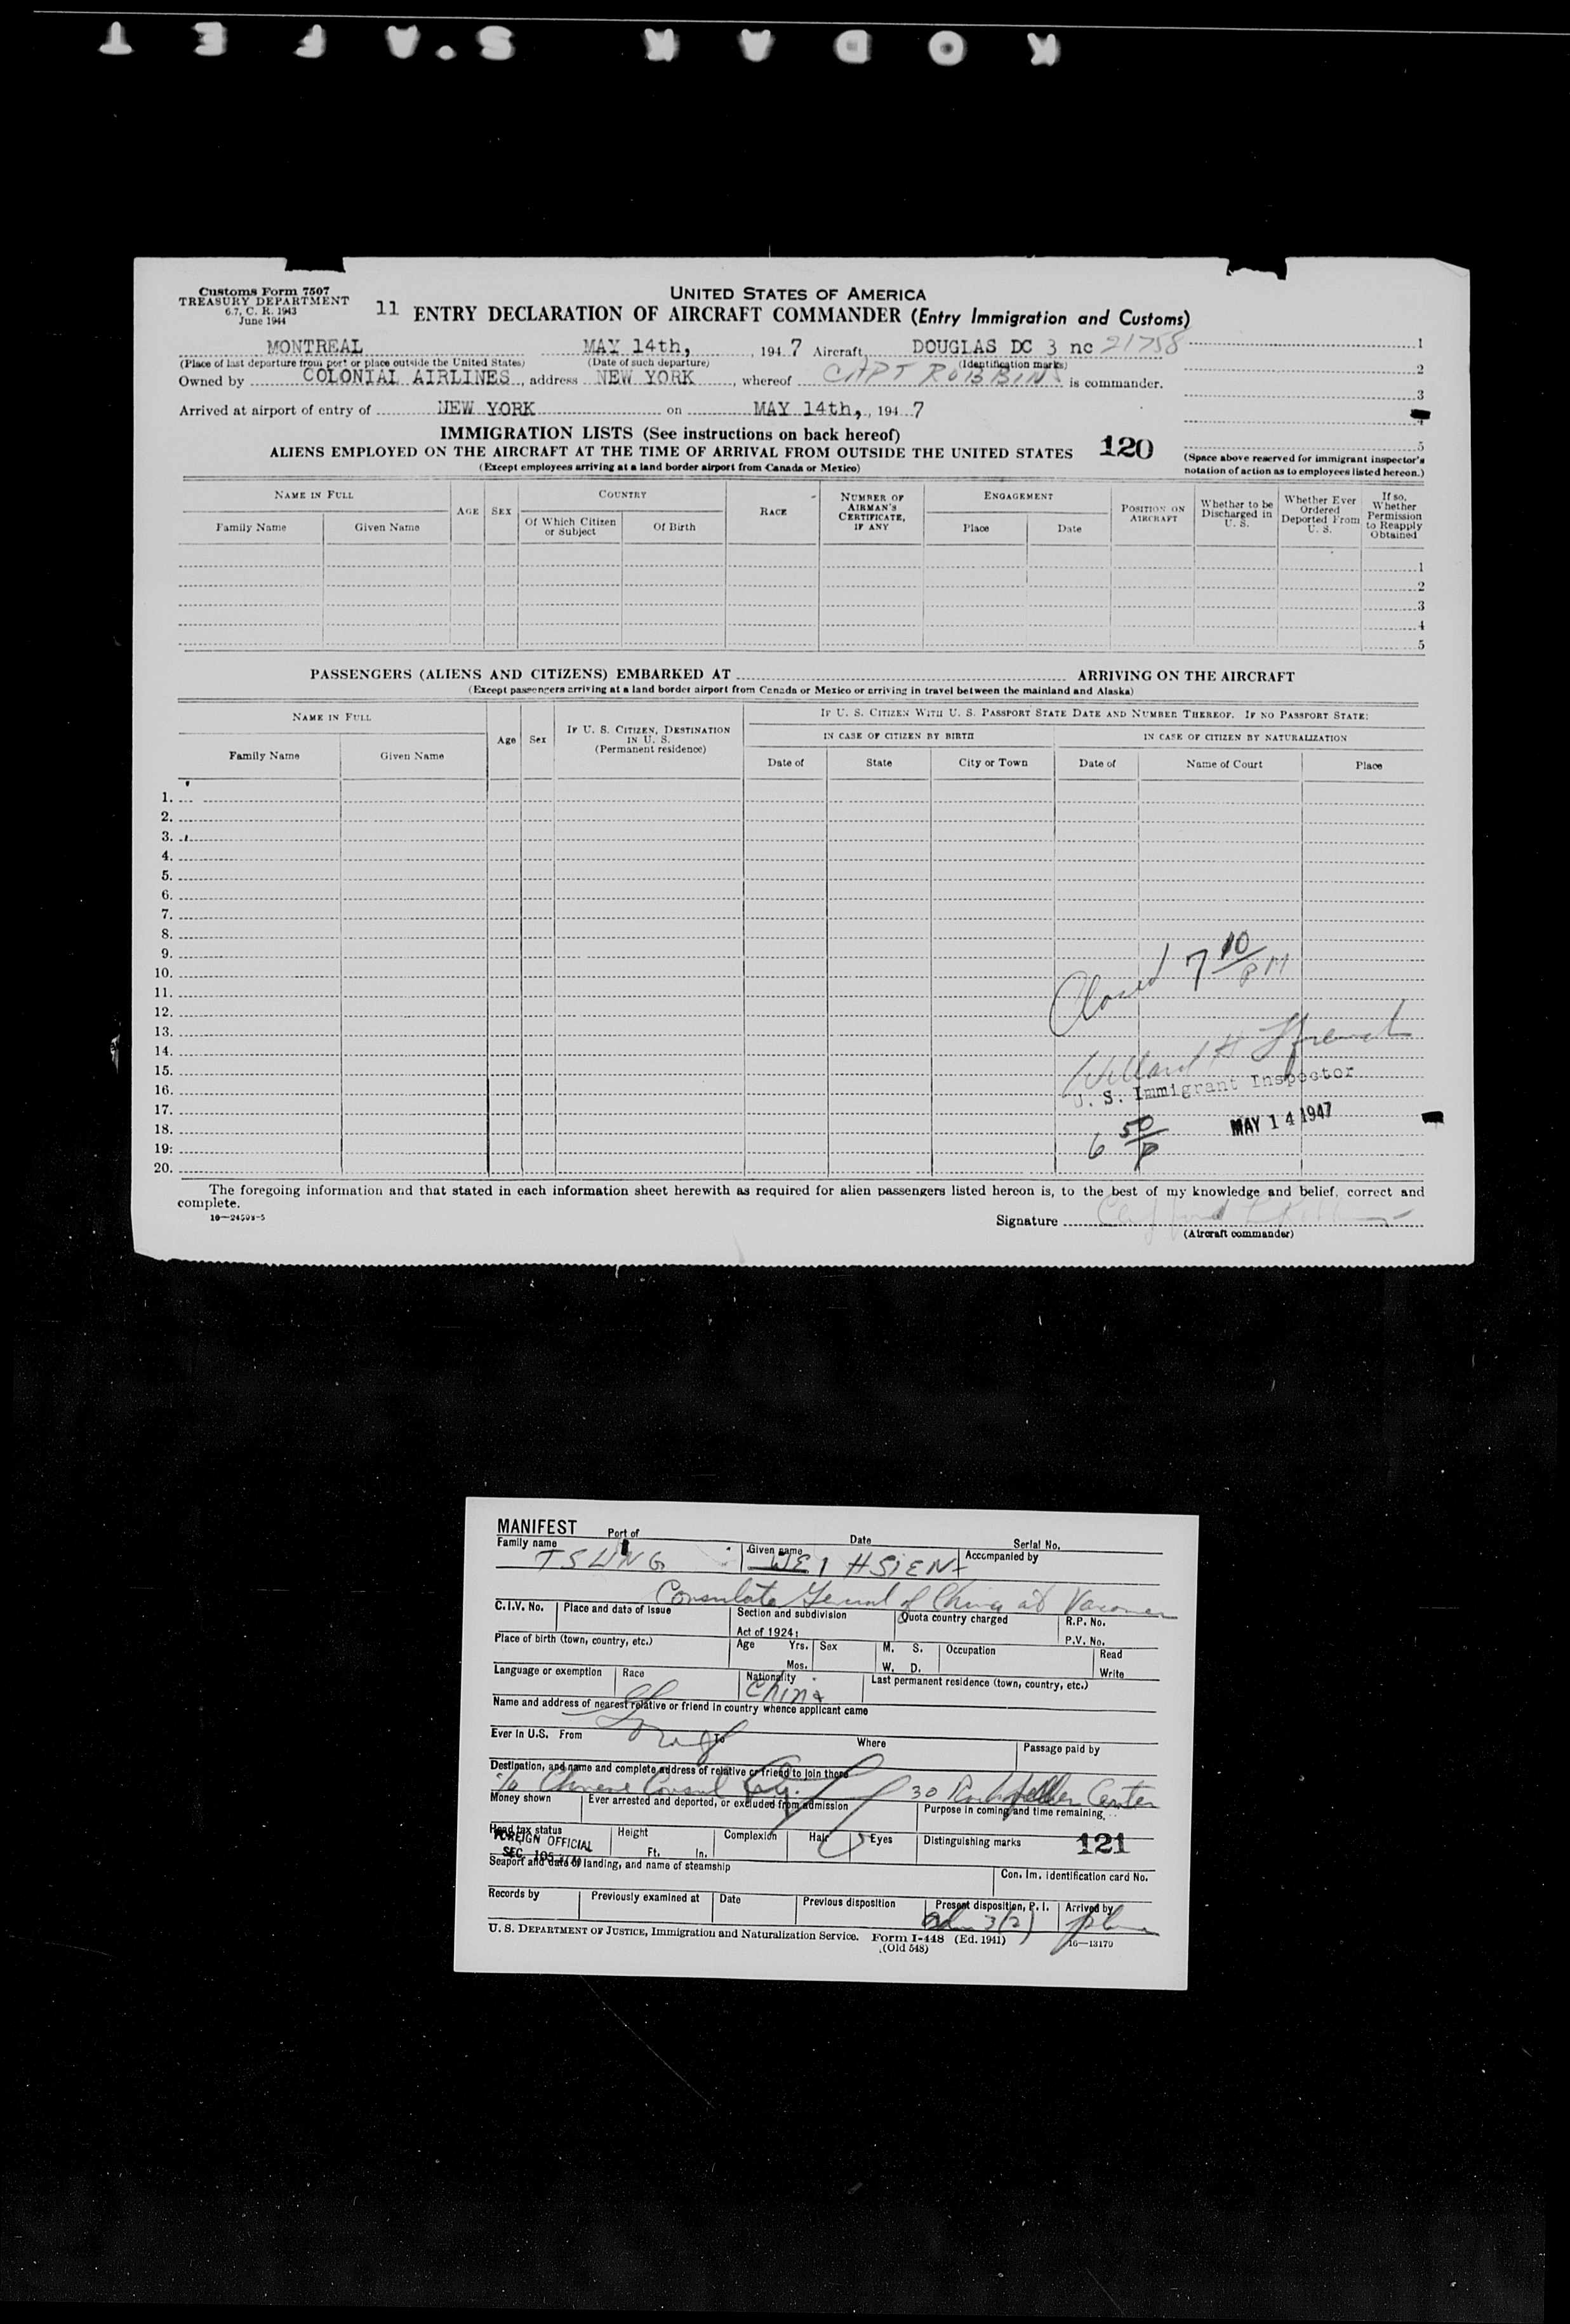 KODAK S.AFET
Customs Form 7507
TREASURY DEPARTMENT
6.7, C. R. 1943
June 1944
UNITED STATES OF AMERICA
11 ENTRY DECLARATION OF AIRCRAFT COMMANDER (Entry Immigration and Customs)
MONTREAL MAY 14th, , 194 7 Aircraft DOUGLAS DC 3 nc 21758
(Place of last departure from port or place outside the United States) (Date of such departure) (Identification marks)
Owned by COLONIAL AIRLINES, address NEW YORK, whereof CAPT ROBBINS is commander.
Arrived at airport of entry of NEW YORK on MAY 14th, , 194 7
1
2
3
4
5
IMMIGRATION LISTS (See instructions on back hereof)
ALIENS EMPLOYED ON THE AIRCRAFT AT THE TIME OF ARRIVAL FROM OUTSIDE THE UNITED STATES 120
(Except employees arriving at a land border airport from Canada or Mexico)
(Space above reserved for immigrant inspector's
notation of action as to employees listed hereon.)
NAME IN FULL
Family Name Given Name
AGE SEX
COUNTRY
Of Which Citizen or Subject Of Birth
RACE
NUMBER OF AIRMAN'S CERTIFICATE, IF ANY
ENGAGEMENT
Place Date
POSITION ON AIRCRAFT
Whether to be Discharged in U. S.
Whether Ever Ordered Deported From U. S.
If so, Whether Permission to Reapply Obtained
1
2
3
4
5
PASSENGERS (ALIENS AND CITIZENS) EMBARKED AT ARRIVING ON THE AIRCRAFT
(Except passengers arriving at a land border airport from Canada or Mexico or arriving in travel between the mainland and Alaska)
NAME IN FULL
Family Name Given Name
Age Sex
IF U. S. CITIZEN, DESTINATION IN U. S.
(Permanent residence)
IF U. S. CITIZEN WITH U. S. PASSPORT STATE DATE AND NUMBER THEREOF. IF NO PASSPORT STATE:
IN CASE OF CITIZEN BY BIRTH IN CASE OF CITIZEN BY NATURALIZATION
Date of State City or Town Date of Name of Court Place
1.
2.
3.
4.
5.
6.
7.
8.
9.
10.
11.
12.
13.
14.
15.
16.
17.
18.
19.
20.
Closed 7 10/PM
Willard H
U. S. Immigrant Inspector
6 50/P MAY 14 1947
The foregoing information and that stated in each information sheet herewith as required for alien passengers listed hereon is, to the best of my knowledge and belief, correct and
complete.
16—24508-5
Signature
(Aircraft commander)
MANIFEST Port of Date Serial No.
Family name TSUNG Given name WEI HSIEN Accompanied by
Consulate General of China at
C.I.V. No. Place and date of issue Section and subdivision Act of 1924: Quota country charged R.P. No.
P.V. No.
Place of birth (town, country, etc.) Age Yrs. Mos. Sex M. S. W. D. Occupation Read Write
Language or exemption Race Nationality China Last permanent residence (town, country, etc.)
Name and address of nearest relative or friend in country whence applicant came
Ever in U.S. From To Where Passage paid by
Destination, and name and complete address of relative or friend to join there
% Chinese Consul 30 Rockefeller Center
Money shown Ever arrested and deported, or excluded from admission Purpose in coming and time remaining
Head tax status Height Ft. In. Complexion Hair Eyes Distinguishing marks 121
FOREIGN OFFICIAL
SEC.
Seaport and date of landing, and name of steamship Con. Im. identification card No.
Records by Previously examined at Date Previous disposition Present disposition, P. I. Arrived by
3(2)
U. S. DEPARTMENT OF JUSTICE, Immigration and Naturalization Service. Form I-448 (Ed. 1941) 16—13179
(Old 548)